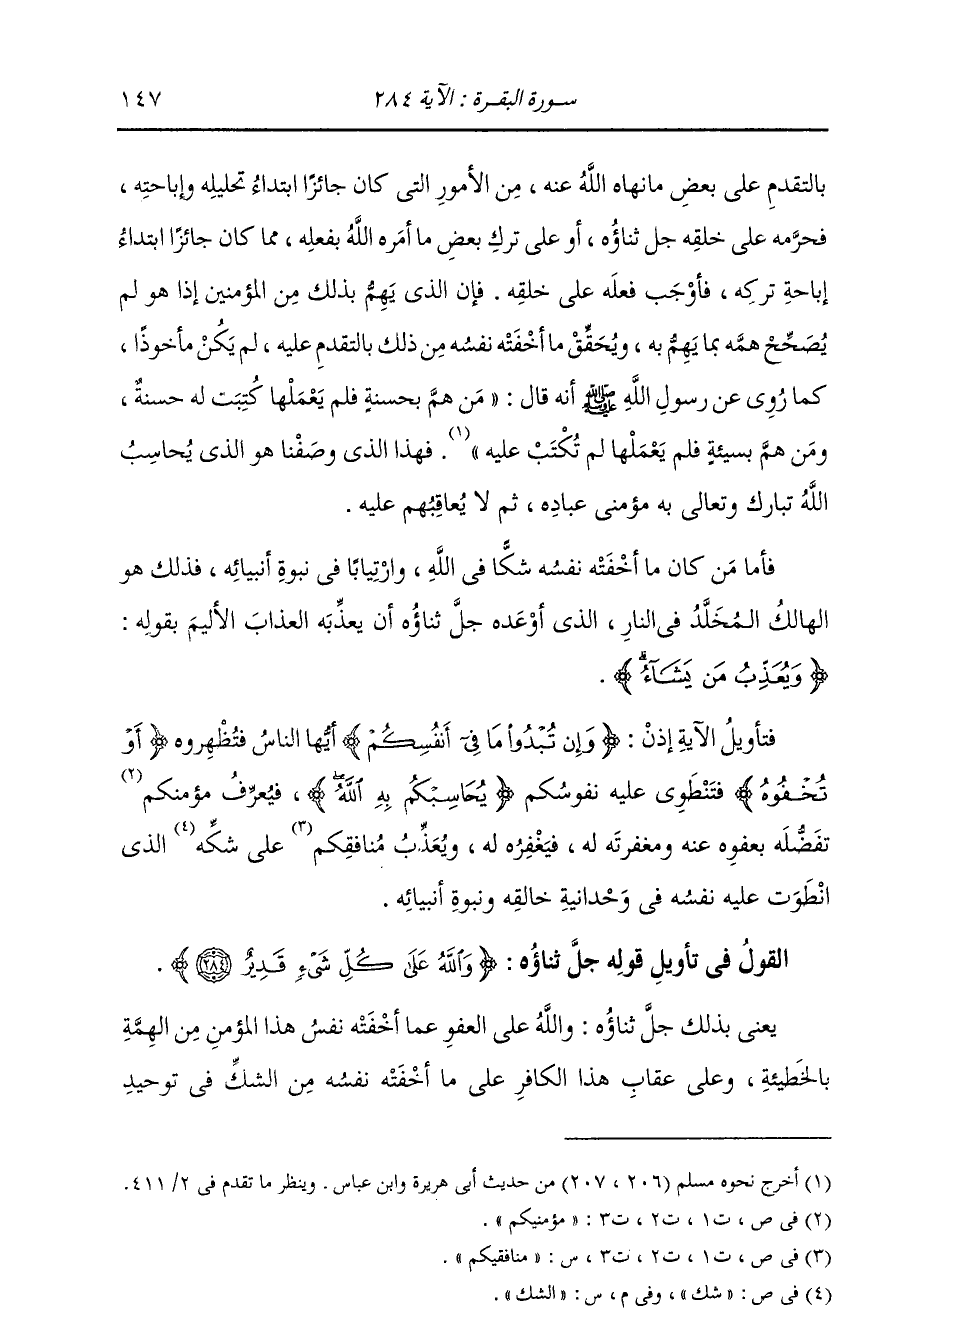 سورة البقرة : الآية ٢٨٤ ١٤٧
بالتقدمِ على بعضِ مانهاه اللَّهُ عنه ، مِن الأمورِ التى كان جائزًا ابتداءُ تحليلِه وإباحتِه ،
فحرَّمه على خلقِه جل ثناؤُه ، أو على تركِ بعضِ ما أمَره اللَّهُ بفعلِه ، مما كان جائزًا ابتداءُ
إباحةِ تركِه ، فأوْجَب فعلَه على خلقِه . فإن الذى يَهِمُّ بذلك مِن المؤمنين إذا هو لم
يُصَحِّحْ همَّه بما يَهِمُّ به ، ويُحَقِّقْ ما أخْفَتْه نفسُه مِن ذلك بالتقدمِ عليه ، لم يَكُنْ مأخوذًا ،
كما رُوِى عن رسولِ اللَّهِ ﷺ أنه قال : « مَن همَّ بحسنةٍ فلم يَعْمَلْها كُتِبَت له حسنةٌ ،
ومَن همَّ بسيئةٍ فلم يَعْمَلْها لم تُكْتَبْ عليه »(١) . فهذا الذى وصَفْنا هو الذى يُحاسِبُ
اللَّهُ تبارك وتعالى به مؤمنى عبادِه ، ثم لا يُعاقِبُهم عليه .
فأما مَن كان ما أخْفَتْه نفسُه شكًّا فى اللَّهِ ، وارْتِيابًا فى نبوةِ أنبيائِه ، فذلك هو
الهالكُ المُخَلَّدُ فى النارِ ، الذى أوْعَده جلَّ ثناؤُه أن يعذِّبَه العذابَ الأليمَ بقولِه :
﴿ وَيُعَذِّبُ مَن يَشَآءُۗ ﴾ .
فتأويلُ الآيةِ إذنْ : ﴿ وَإِن تُبْدُوا۟ مَا فِىٓ أَنفُسِكُمْ ﴾ أيُّها الناسُ فتُظْهِروه ﴿ أَوْ
تُخْفُوهُ ﴾ فتَنْطَوِى عليه نفوسُكم ﴿ يُحَاسِبْكُم بِهِ ٱللَّهُۖ ﴾ ، فيُعرِّفُ مؤمنَكم(٢)
تفَضُّلَه بعفوِه عنه ومغفرتَه له ، فيَغْفِرُه له ، ويُعَذِّبُ مُنافقِكم(٣) على شكِّه(٤) الذى
انْطَوَت عليه نفسُه فى وَحْدانيةِ خالقِه ونبوةِ أنبيائِه .
القولُ فى تأويلِ قولِه جلَّ ثناؤُه : ﴿ وَٱللَّهُ عَلَىٰ كُلِّ شَىْءٍ قَدِيرٌ ٢٨٤ ﴾ .
يعنى بذلك جلَّ ثناؤُه : واللَّهُ على العفوِ عما أخْفَتْه نفسُ هذا المؤمنِ مِن الهِمَّةِ
بالخَطيئةِ ، وعلى عقابِ هذا الكافرِ على ما أخْفَتْه نفسُه مِن الشكِّ فى توحيدِ
(١) أخرج نحوه مسلم (٢٠٦ ، ٢٠٧) من حديث أبى هريرة وابن عباس . وينظر ما تقدم فى ٢/ ٤١١.
(٢) فى ص ، ت١ ، ت٢ ، ت٣ : « مؤمنيكم » .
(٣) فى ص ، ت١ ، ت٢ ، ت٣ ، س : « منافقيكم » .
(٤) فى ص : « شك » ، وفى م ، س : « الشك » .